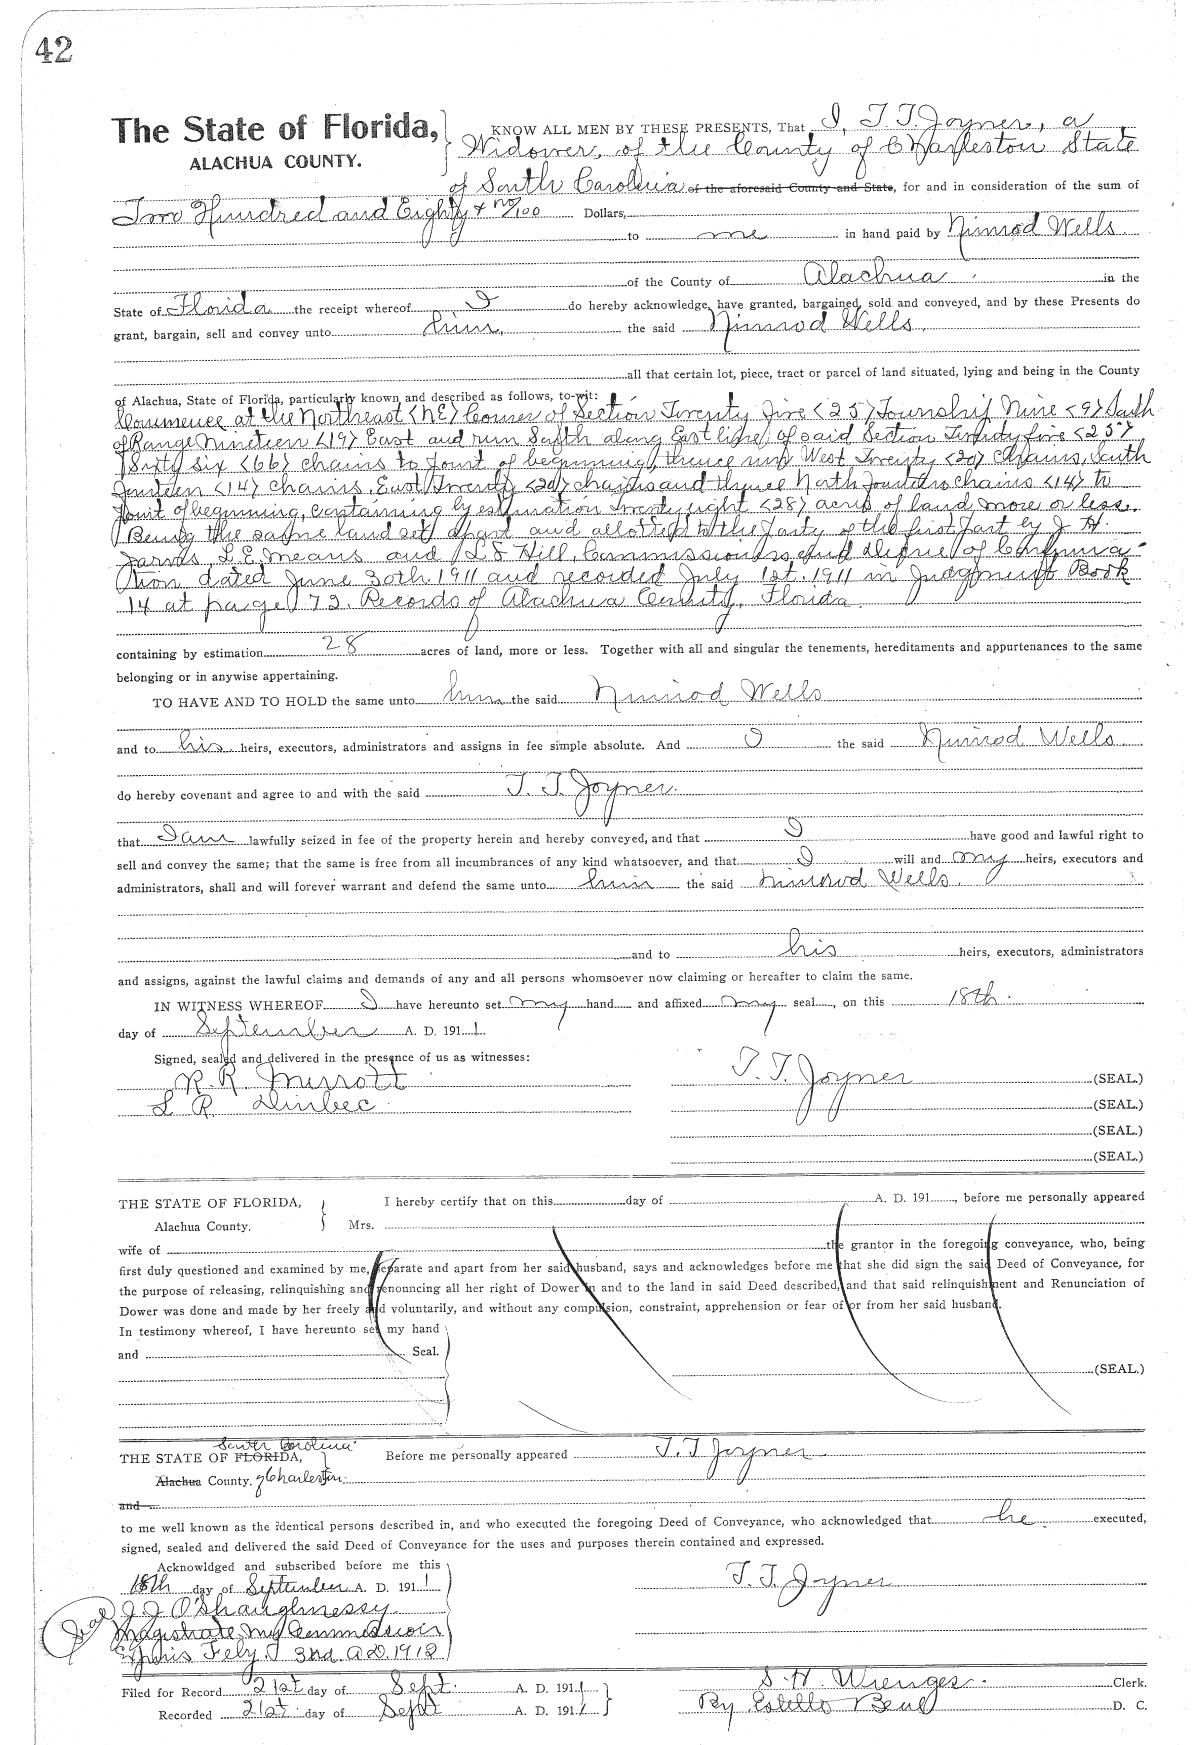 42
The State of Florida, KNOW ALL MEN BY THESE PRESENTS, That I, T. T. Joyner, a
ALACHUA COUNTY. Widower, of the County of Charleston State
of South Carolina of the aforesaid County and State, for and in consideration of the sum of
Two Hundred and Eighty & no/100 Dollars,
to me in hand paid by Nimrod Wells
of the County of Alachua in the
State of Florida the receipt whereof I do hereby acknowledge, have granted, bargained, sold and conveyed, and by these Presents do
grant, bargain, sell and convey unto him, the said Nimrod Wells
all that certain lot, piece, tract or parcel of land situated, lying and being in the County
of Alachua, State of Florida, particularly known and described as follows, to-wit:
Commence at the Northeast <NE> Corner of Section Twenty five <25> Township Nine <9> South
of Range Nineteen <19> East and run South along East line of said Section Twenty five <25>
Sixty six <66> chains to point of beginning, thence run West Twenty <20> Chains, South
fourteen <14> chains, East Twenty <20> chains and thence North fourteen chains <14> to
point of beginning, containing by estimation Twenty eight <28> acres of land, more or less.
Being the same land set apart and allotted to the party of the first part by J. H.
Jarvis, L. E. Means and L S Hill, Commissioners and decree of Confirma
tion dated June 30th 1911 and recorded July 1st. 1911 in Judgment Book
14 at page 72. Records of Alachua County, Florida.
containing by estimation 28 acres of land, more or less. Together with all and singular the tenements, hereditaments and appurtenances to the same
belonging or in anywise appertaining.
TO HAVE AND TO HOLD the same unto him the said Nimrod Wells
and to his heirs, executors, administrators and assigns in fee simple absolute. And I the said Nimrod Wells
do hereby covenant and agree to and with the said T. T. Joyner.
that I am lawfully seized in fee of the property herein and hereby conveyed, and that I have good and lawful right to
sell and convey the same; that the same is free from all incumbrances of any kind whatsoever, and that I will and my heirs, executors and
administrators, shall and will forever warrant and defend the same unto him the said Nimrod Wells.
and to his heirs, executors, administrators
and assigns, against the lawful claims and demands of any and all persons whomsoever now claiming or hereafter to claim the same.
IN WITNESS WHEREOF I have hereunto set my hand and affixed my seal, on this 18th.
day of September A. D. 1911
Signed, sealed and delivered in the presence of us as witnesses:
R. R. T. T. Joyner (SEAL.)
L R. (SEAL.)
(SEAL.)
(SEAL.)
THE STATE OF FLORIDA, I hereby certify that on this day of A. D. 191 , before me personally appeared
Alachua County. Mrs.
wife of the grantor in the foregoing conveyance, who, being
first duly questioned and examined by me, separate and apart from her said husband, says and acknowledges before me that she did sign the said Deed of Conveyance, for
the purpose of releasing, relinquishing and renonncing all her right of Dower in and to the land in said Deed described, and that said relinquishment and Renunciation of
Dower was done and made by her freely and voluntarily, and without any compulsion, constraint, apprehension or fear of or from her said husband.
In testimony whereof, I have hereunto set my hand
and Seal.
(SEAL.)
South Carolina
THE STATE OF FLORIDA, Before me personally appeared T. T Joyner
Alachua County. of Charleston.
and
to me well known as the identical persons described in, and who executed the foregoing Deed of Conveyance, who acknowledged that he executed,
signed, sealed and delivered the said Deed of Conveyance for the uses and purposes therein contained and expressed.
Acknowldged and subscribed before me this
18th day of September A. D. 1911 T. T. Joyner
J J O'Shaughnessy
Seal Magistrate, My Commission
Expires Feby. 3nd. A.D. 1912
Filed for Record 21st day of Sept. A. D. 1911 S. H. Wienges. Clerk.
Recorded 21st. day of Sept A. D. 1911 By D. C.